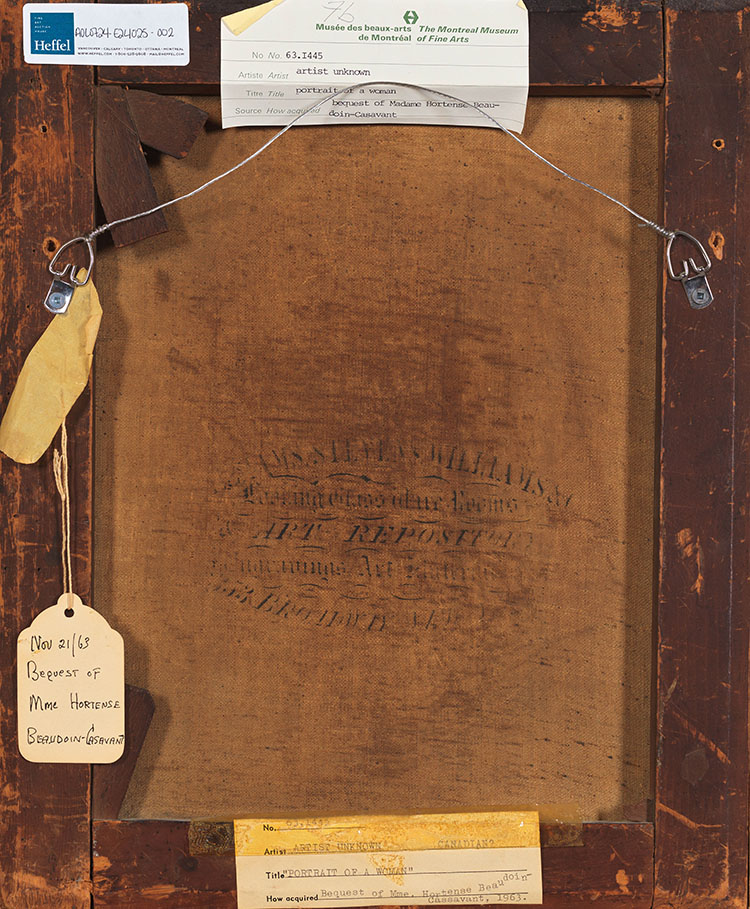 FINE
ART
AUCTION
HOUSE
Heffel
A0LA24-E24025-002
VANCOUVER • CALGARY • TORONTO • OTTAWA • MONTREAL
76
Musée des beaux-arts The Montreal Museum
de Montréal of Fine Arts
No No. 63.I445
Artiste Artist artist unknown
Titre Title portrait of a woman
Source How acquired bequest of Madame Hortense Beau-
doin-Casavant
WILLIAMS, STEVENS, WILLIAMS & Co
Looking Glass Ware Rooms
& ART REPOSITORY
Engravings Art
353 BROADWAY
Nov 21/63
Bequest of
Mme Hortense
Beaudoin-Casavant
No.
Artist ARTIST UNKNOWN CANADIAN?
Title "PORTRAIT OF A WOMAN"
How acquired Bequest of Mme. Hortense Beaudoin-
Cassavant, 1963.